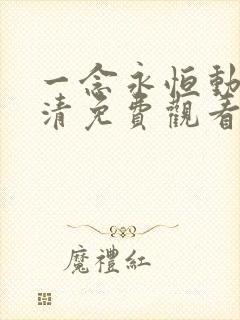 一念永恒動
清免費觀看
魔禮紅